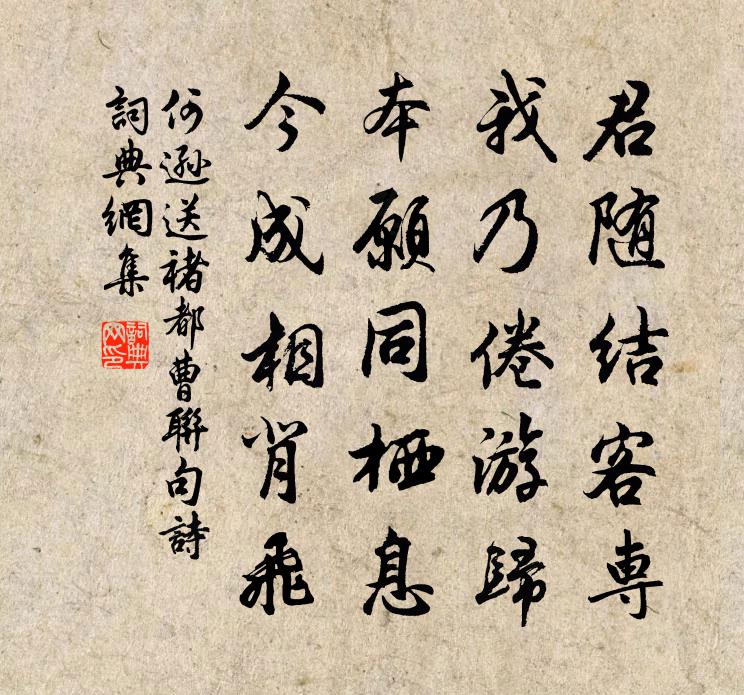 君随結客専
我乃倦游歸
本願同栖息
今成相背飛
何遜送褚都曹聯句詩
詞典網集
詞典网印